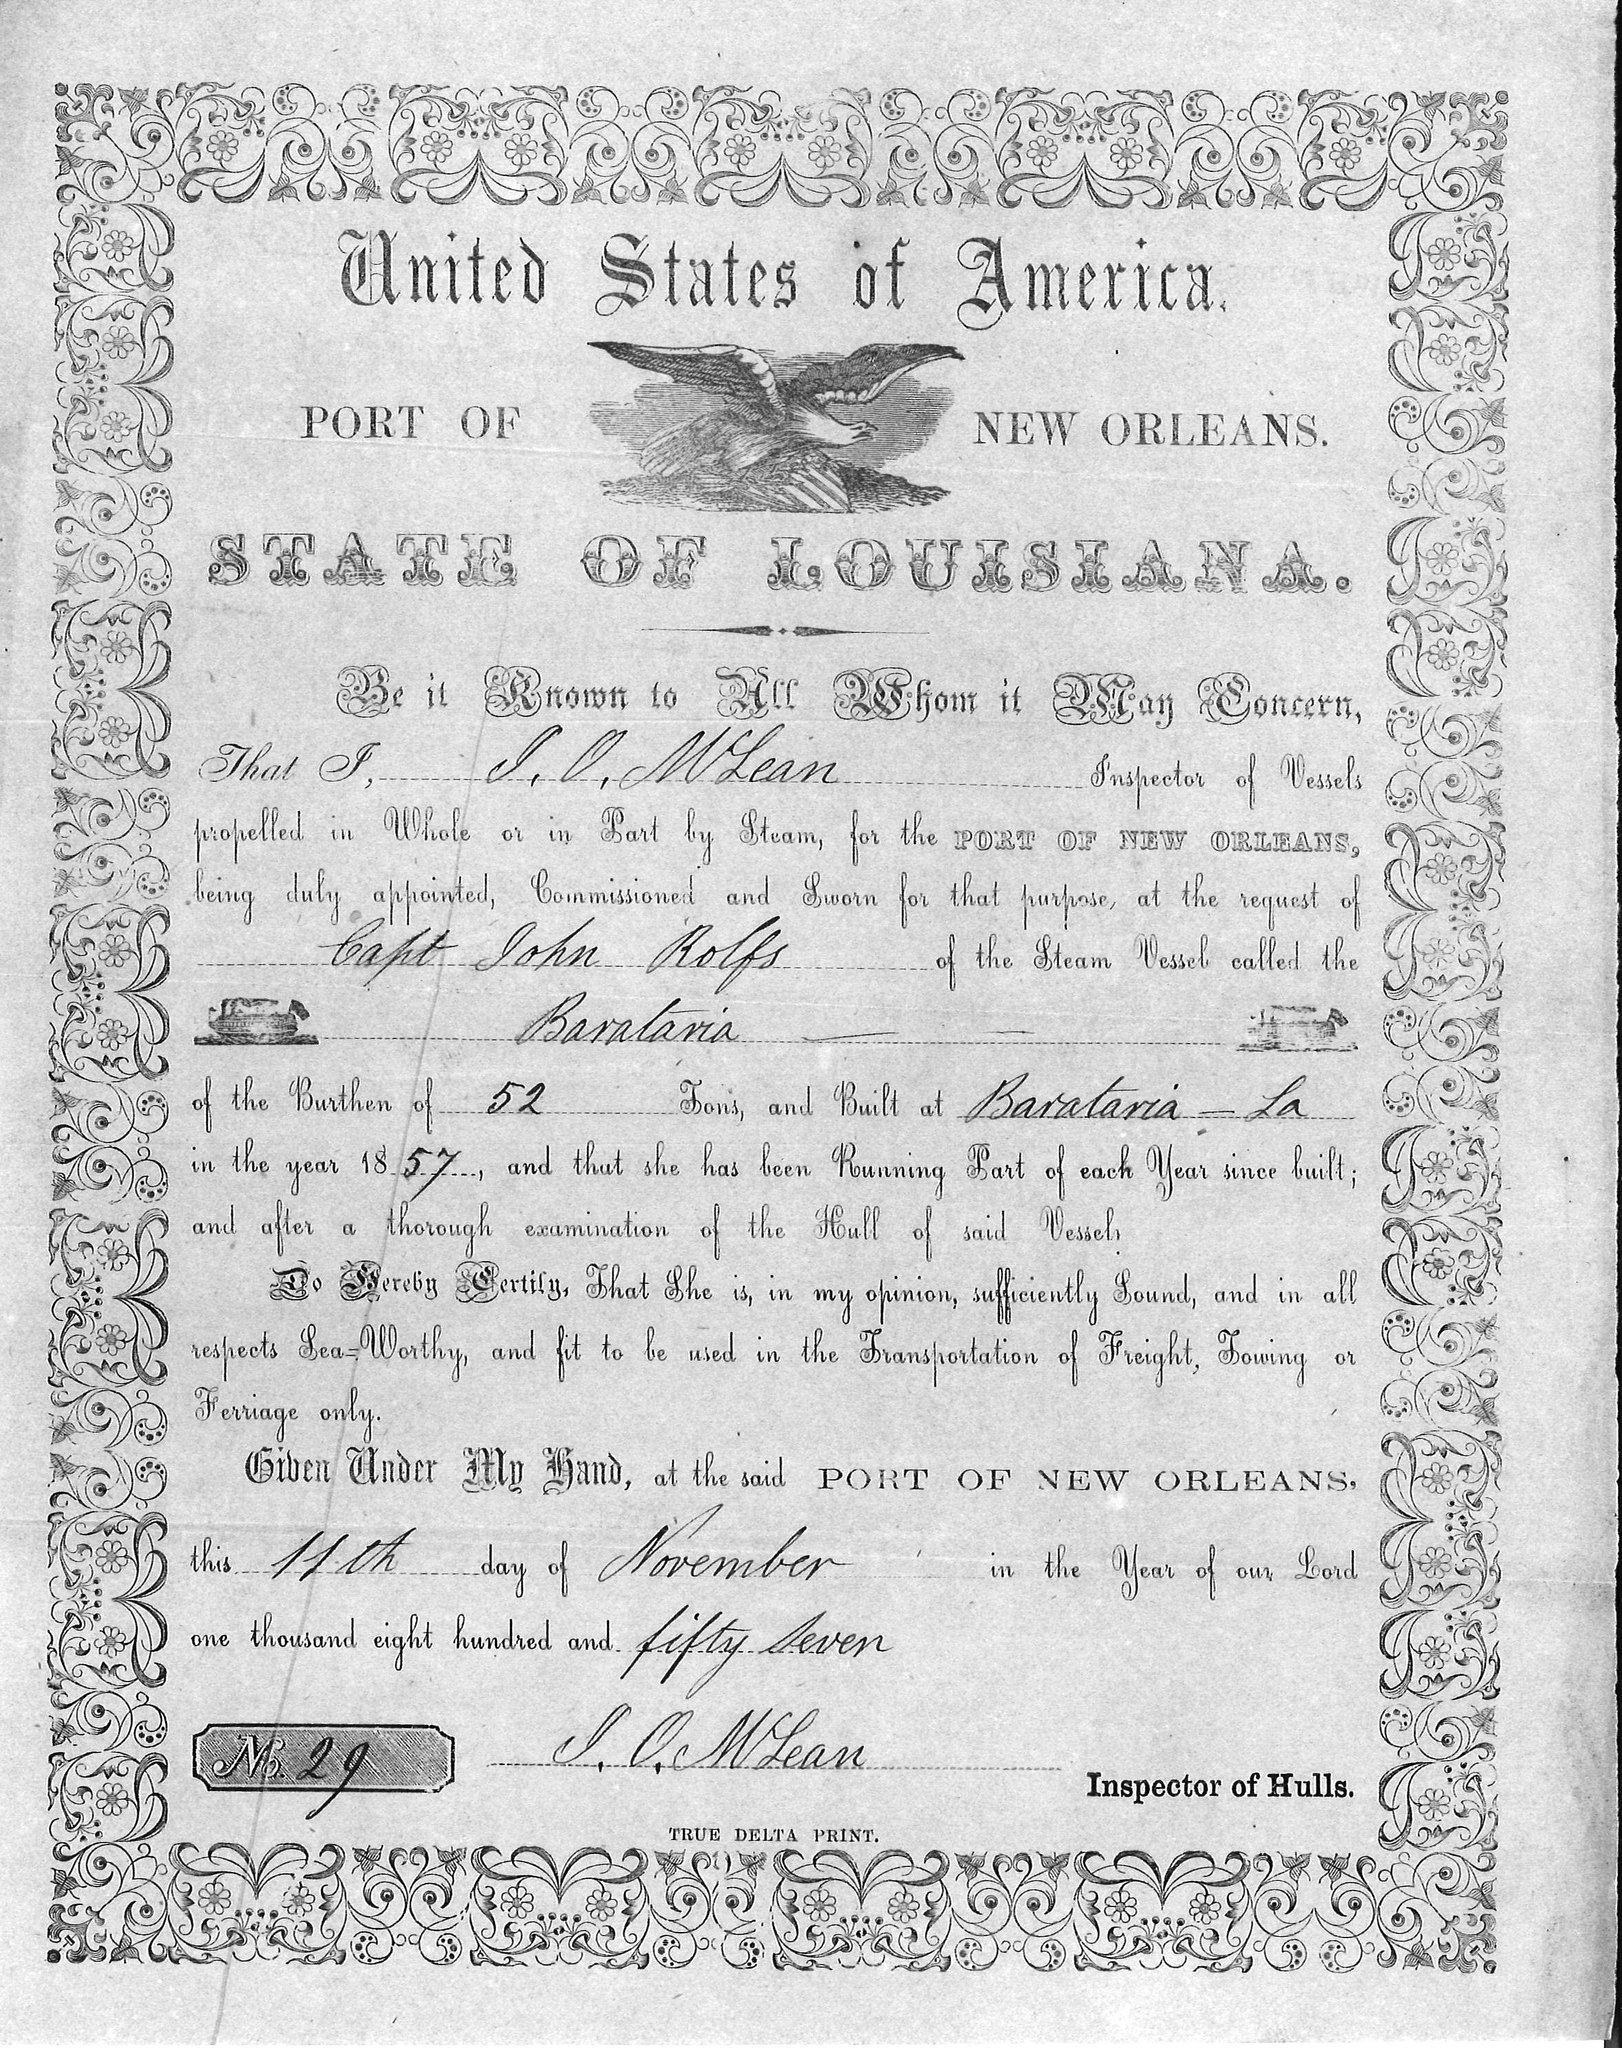 United States of America.
PORT OF NEW ORLEANS.
STATE OF LOUISIANA.
Be it Known to All Whom it May Concern,
That I, J. O. McLean Inspector of Vessels
propelled in Whole or in Part by Steam, for the PORT OF NEW ORLEANS,
being duly appointed, Commissioned and Sworn for that purpose, at the request of
Capt John Rolfs of the Steam Vessel called the
Barataria
of the Burthen of 52 Tons, and Built at Barataria - La
in the year 1857, and that she has been Running Part of each Year since built;
and after a thorough examination of the Hull of said Vessel,
Do Hereby Certify, That She is, in my opinion, sufficiently Sound, and in all
respects Sea=Worthy, and fit to be used in the Transportation of Freight, Towing or
Ferriage only.
Given Under My Hand, at the said PORT OF NEW ORLEANS,
this 11th day of November in the Year of our Lord
one thousand eight hundred and fifty seven
No. 29 J. O. McLean Inspector of Hulls.
TRUE DELTA PRINT.